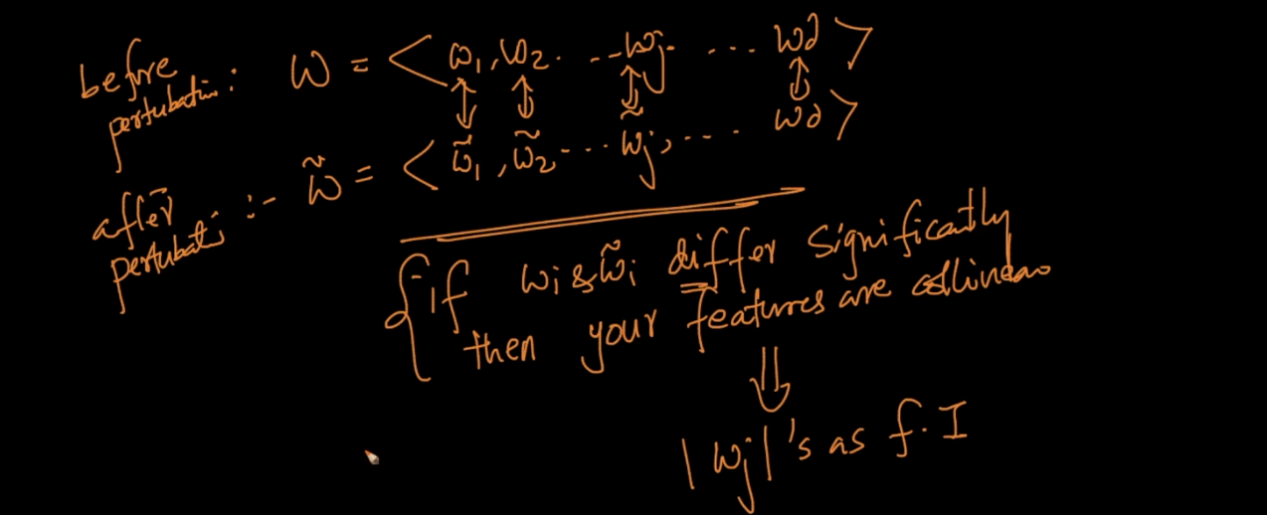 before pertubation: W = < ω₁, ω₂. ..wj. ... wd >
after pertubati :- w̃ = < w̃₁, w̃₂, ... w̃j, .... wd >
{if wi & w̃i differ significantly
then your features are collinear
⇓
|wj|'s as f.I